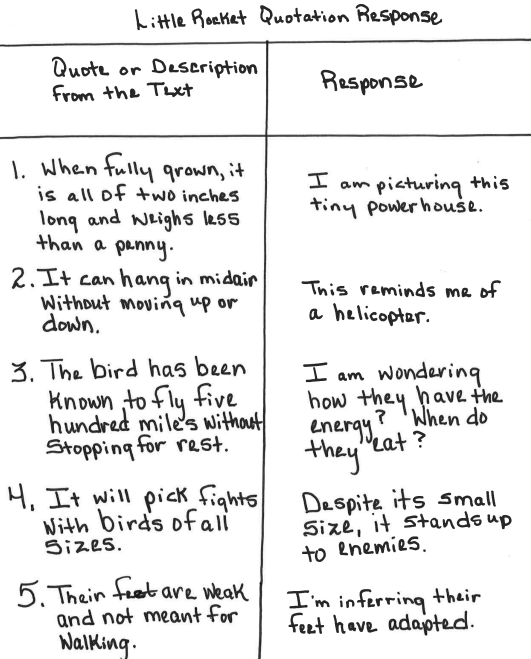 Little Rocket Quotation Response
Quote or Description
from the Text
Response
1. When fully grown, it
is all of two inches
long and weighs less
than a penny.
I am picturing this
tiny powerhouse.
2. It can hang in midair
without moving up or
down.
This reminds me of
a helicopter.
3. The bird has been
known to fly five
hundred mile's without
stopping for rest.
I am wondering
how they have the
energy? When do
they eat?
4. It will pick fights
with birds of all
sizes.
Despite its small
size, it stands up
to enemies.
5. Their feet are weak
and not meant for
walking.
I'm inferring their
feet have adapted.